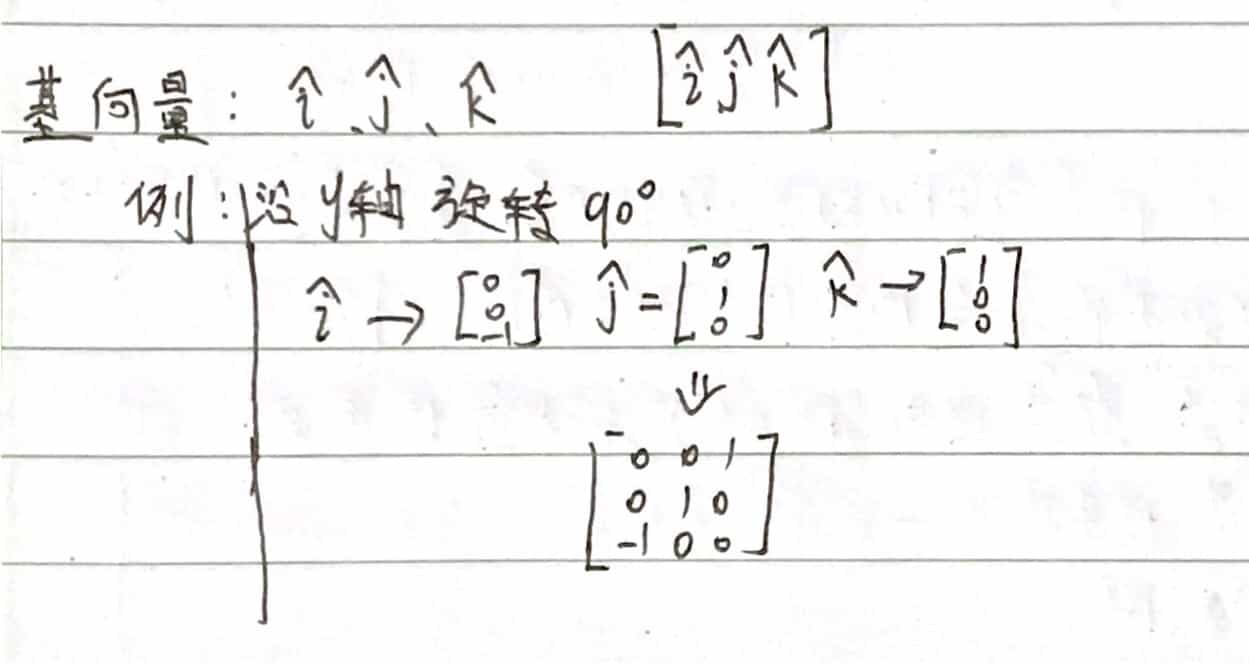 基向量: î、ĵ、k̂ [î ĵ k̂]
例: 沿y轴 旋转 90°
î → [0 0 -1] ĵ = [0 1 0] k̂ → [1 0 0]
⇓
0 0 1
0 1 0
-1 0 0